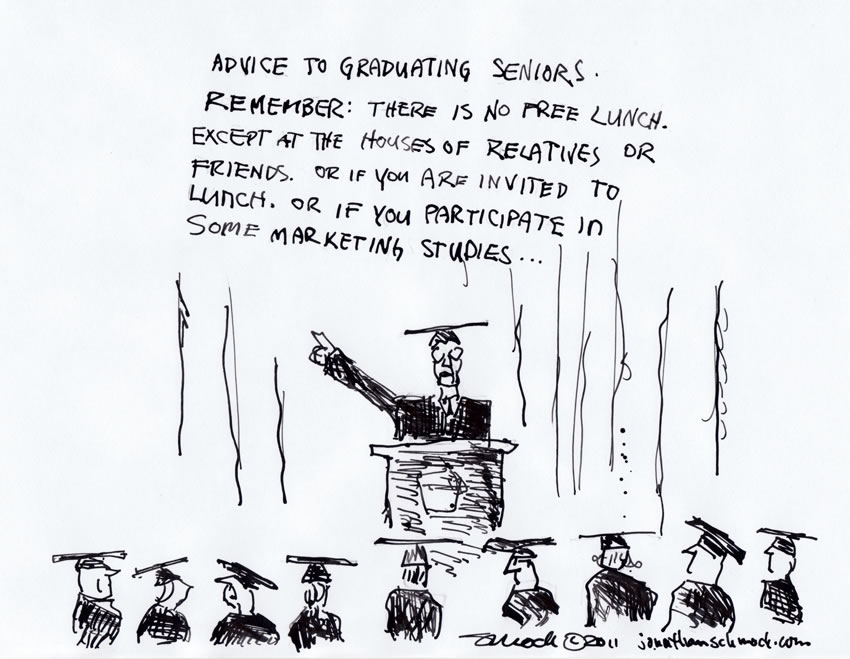 ADVICE TO GRADUATING SENIORS.
REMEMBER: THERE IS NO FREE LUNCH.
EXCEPT AT THE HOUSES OF RELATIVES OR
FRIENDS. OR IF YOU ARE INVITED TO
LUNCH. OR IF YOU PARTICIPATE IN
SOME MARKETING STUDIES...
Schmock ©2011 jonathanschmock.com